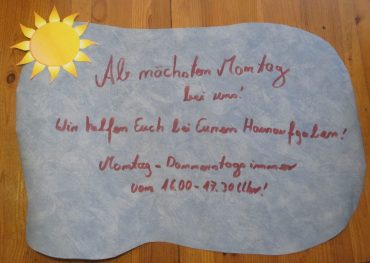 Ab nächsten Montag
bei uns!
Wir helfen Euch bei Euren Hausaufgaben!
Montag - Donnerstags immer
vom 16.00-17.30 Uhr!